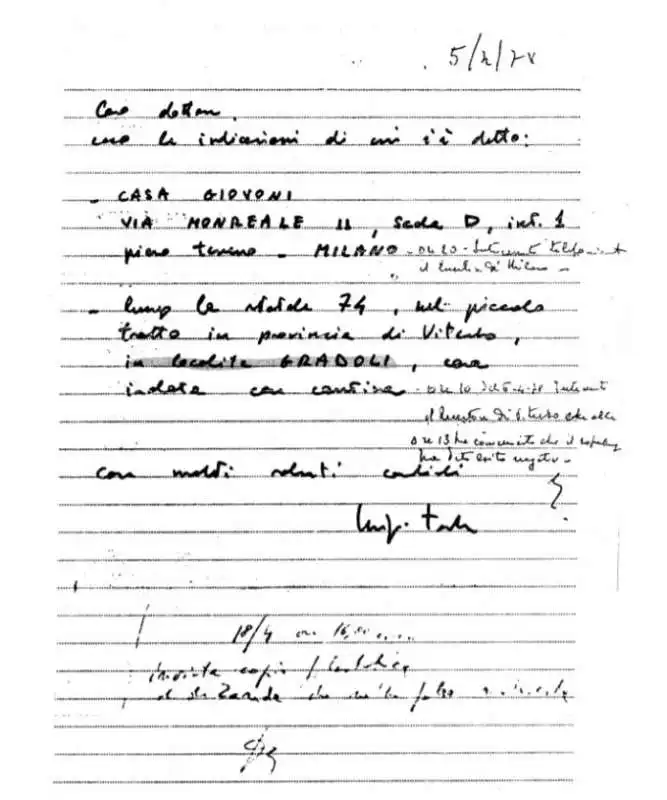 5/4/78
Caro dottore,
ecco le indicazioni di cui s'è detto:
- CASA GIOVONI
VIA MONREALE 11, scala D, int. 1
piano terreno - MILANO - ore 10 -
il Questore di Milano -
- lungo la statale 74, nel piccolo
tratto in provincia di Viterbo,
in località GRADOLI, casa
isolata con cantina - ore 10 del 5-4-78
il Questore di Viterbo che alle
ore 13 ha comunicato che il
ha dato esito negativo -
con molti saluti cordiali
18/4 ore 16,
inviata copia
al dr